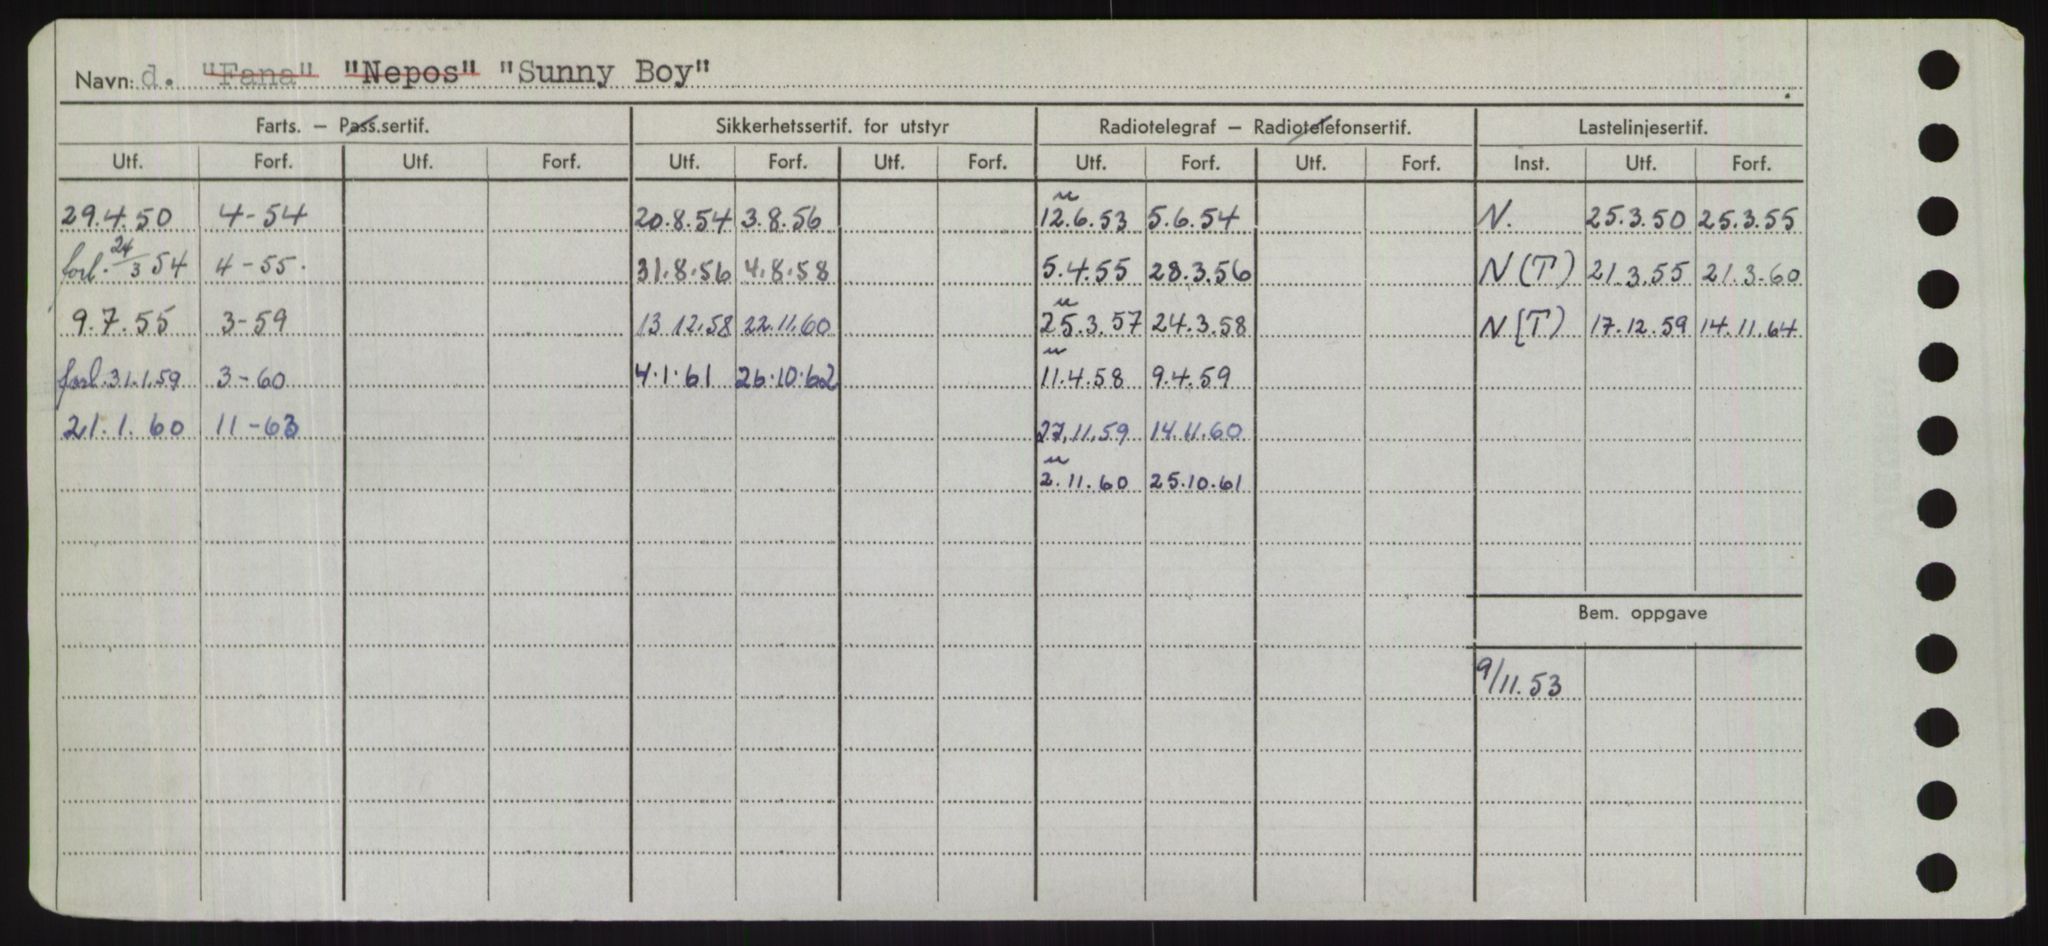 Navn: d. "Fana" "Nepos" "Sunny Boy"
Farts. – Pass.sertif. Sikkerhetssertif. for utstyr Radiotelegraf – Radiotelefonsertif. Lastelinjesertif.
Utf. Forf. Utf. Forf. Utf. Forf. Utf. Forf. Utf. Forf. Utf. Forf. Inst. Utf. Forf.
29.4.50 4-54 20.8.54 3.8.56 12.6.53 5.6.54 N. 25.3.50 25.3.55
forl. 24/3 54 4-55. 31.8.56 4.8.58 5.4.55 28.3.56 N(T) 21.3.55 21.3.60
9.7.55 3-59 13 12.58 22.11.60 25.3.57 24.3.58 N(T) 17.12.59 14.11.64
forl. 31.1.59 3-60 4.1.61 26.10.62 11.4.58 9.4.59
21.1.60 11-63 27.11.59 14.11.60
2.11.60 25.10.61
Bem. oppgave
9/11.53